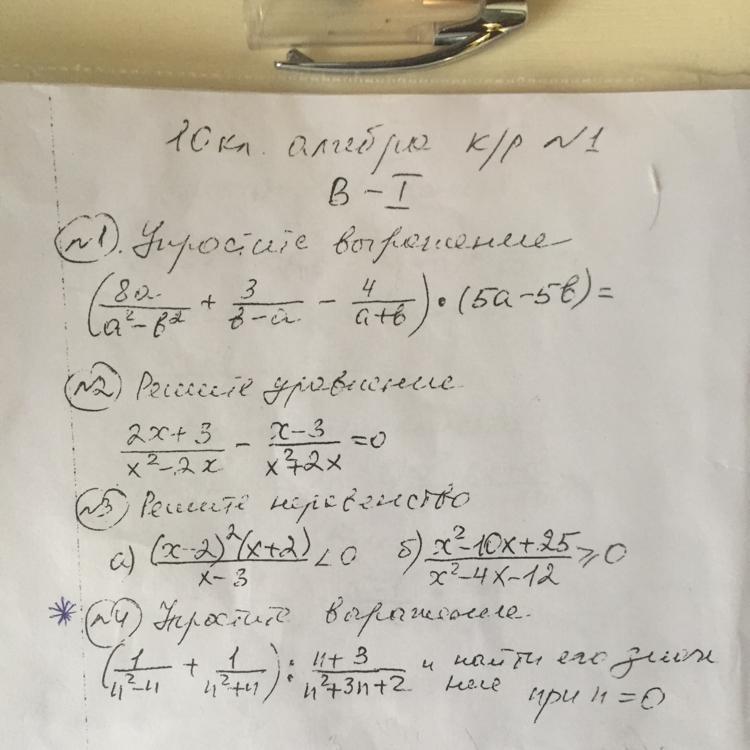 10 кл. алгебра к/р №1
В-I
№1. Упростите выражение
(8a/(a²-b²) + 3/(b-a) - 4/(a+b)) • (5a-5b) =
№2 Решите уравнение
(2x+3)/(x²-2x) - (x-3)/(x²+2x) = 0
№3 Решите неравенство
а) (x-2)²(x+2)/(x-3) < 0 б) (x²-10x+25)/(x²-4x-12) ≥ 0
* №4 Упростите выражение.
(1/(n²-n) + 1/(n²+n)) : (n+3)/(n²+3n+2) и найти его значе
ние при n=0